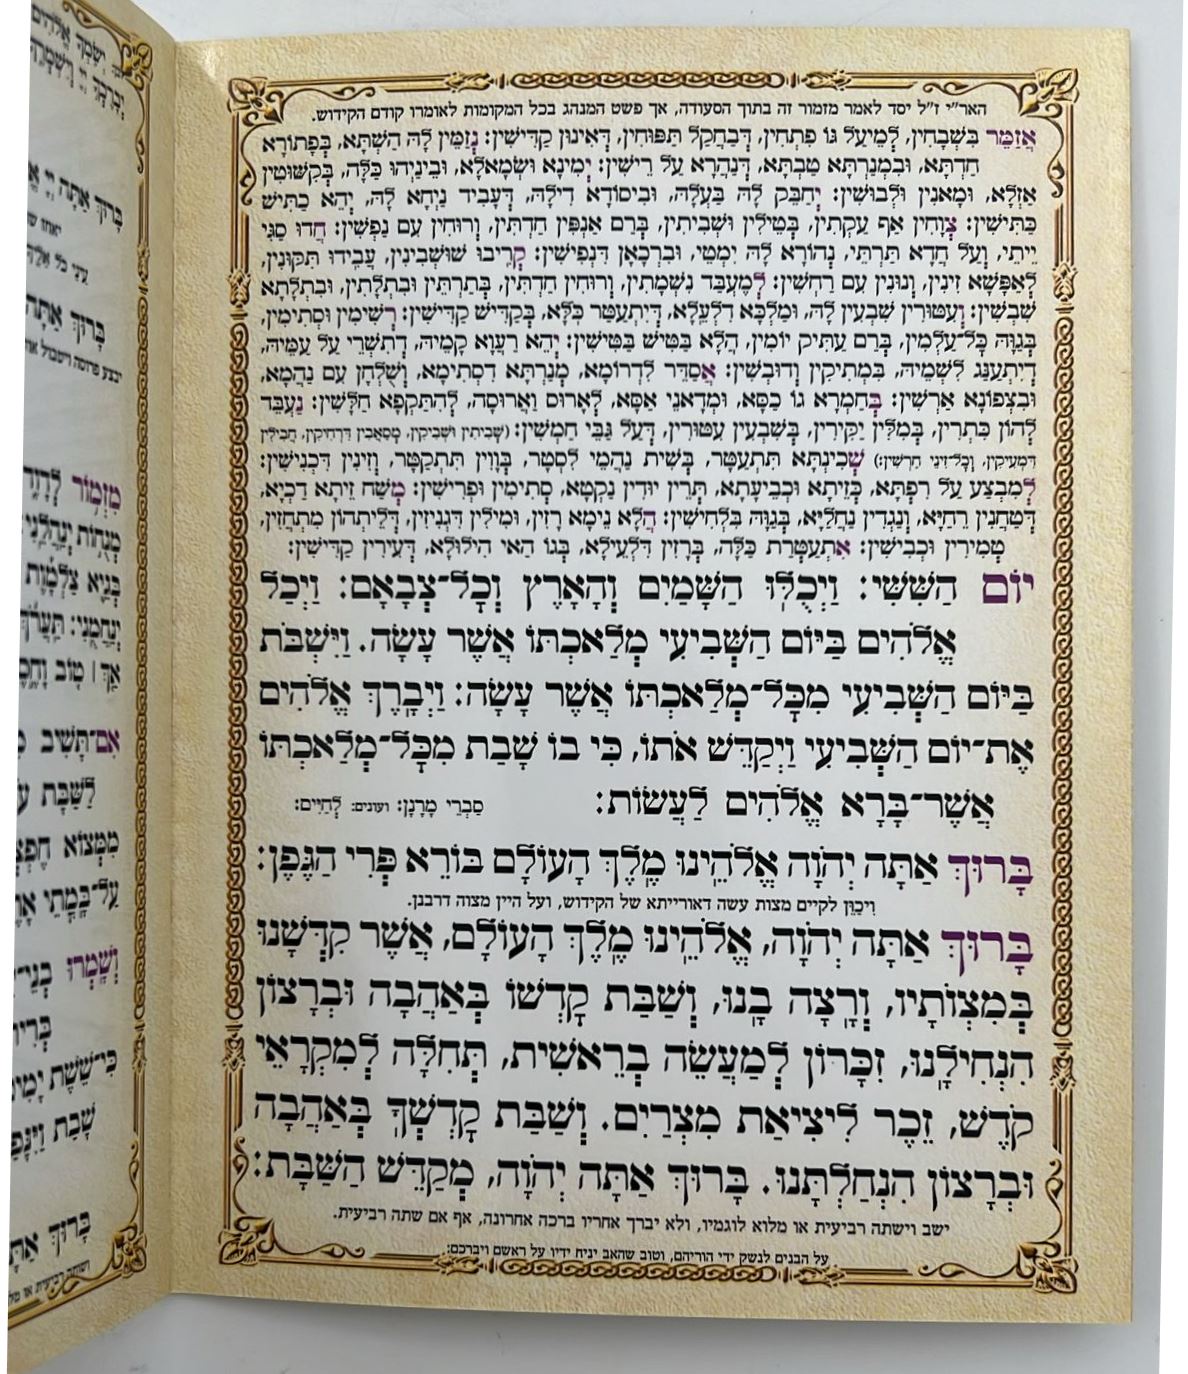 האר"י ז"ל יסד לאמר מזמור זה בתוך הסעודה, אך פשט המנהג בכל המקומות לאומרו קודם הקידוש.
אֲזַמֵּר בִּשְׁבָחִין, לְמֵיעַל גּוֹ פִתְחִין, דְּבַחֲקַל תַּפּוּחִין, דְּאִינוּן קַדִּישִׁין: נְזַמֵּין לָהּ הַשְׁתָּא, בְּפָתוֹרָא
חַדְתָּא, וּבִמְנַרְתָּא טַבְתָּא, דְּנַהֲרָא עַל רֵישִׁין: יְמִינָא וּשְׂמָאלָא, וּבֵינַיְהוּ כַּלָּה, בְּקִשּׁוּטִין
אָזְלָא, וּמָאנִין וּלְבוּשִׁין: יְחַבֵּק לָהּ בַּעְלָהּ, וּבִיסוֹדָא דִילָהּ, דְּעָבִיד נַיְחָא לָהּ, יְהֵא כַתִּישׁ
כַּתִּישִׁין: צְוָחִין אַף עַקְתִין, בְּטֵילִין וּשְׁבִיתִין, בְּרַם אַנְפִּין חַדְתִּין, וְרוּחִין עִם נַפְשִׁין: חֲדוּ סַגִּי
יֵיתֵי, וְעַל חֲדָא תַּרְתֵּי, נְהוֹרָא לָהּ יִמְטֵי, וּבִרְכָאָן דִּנְפִישִׁין: קְרִיבוּ שׁוּשְׁבִינִין, עֲבִידוּ תִּקּוּנִין,
לְאַפָּשָׁא זֵינִין, וְנוּנִין עִם רַחֲשִׁין: לְמֶעְבַּד נִשְׁמָתִין, וְרוּחִין חַדְתִּין, בְּתַרְתֵּין וּבִתְלָתִין, וּבִתְלָתָא
שִׁבְשִׁין: וְעִטּוּרִין שַׁבְעִין לָהּ, וּמַלְכָּא דִלְעֵלָּא, דְּיִתְעַטַּר כֹּלָּא, בְּקַדִּישׁ קַדִּישִׁין: רְשִׁימִין וּסְתִימִין,
בְּגַוָּהּ כָּל־עָלְמִין, בְּרַם עַתִּיק יוֹמִין, הֲלָא בַּטִּישׁ בַּטִּישִׁין: יְהֵא רַעֲוָא קַמֵּיהּ, דְּתִשְׁרֵי עַל עַמֵּיהּ,
דְּיִתְעַנֵּג לִשְׁמֵיהּ, בִּמְתִיקִין וְדוּבְשִׁין: אֲסַדֵּר לִדְרוֹמָא, מְנַרְתָּא דִסְתִימָא, וְשֻׁלְחָן עִם נַהֲמָא,
וּבִצְפוֹנָא אַרְשִׁין: בְּחַמְרָא גוֹ כַסָּא, וּמְדָאנֵי אַסָּא, לְאָרוּס וַאֲרוּסָה, לְהִתַּקְפָא חַלָּשִׁין: נַעֲבֵּד
לְהוֹן כִּתְרִין, בְּמִלִּין יַקִּירִין, בְּשִׁבְעִין עִטּוּרִין, דְּעַל גַּבֵּי חַמְשִׁין: (שְׁבִיתִין וּשְׁבִיקִין, מְסָאֲבִין דִּרְחִיקִין, חֲבִילִין
דִּמְעִיקִין, וְכָל־זֵינֵי חַרְשִׁין:) שְׁכִינְתָּא תִּתְעַטַּר, בְּשִׁית נַהֲמֵי לִסְטַר, בְּוָוִין תִּתְקַטַּר, וְזֵינִין דִּכְנִישִׁין:
לְמִבְצַע עַל רִפְתָּא, כְּזֵיתָא וּכְבֵיעָתָא, תְּרֵין יוּדִין נַקְטָא, סְתִימִין וּפְרִישִׁין: מְשַׁח זֵיתָא דַּכְיָא,
דְּטַחֲנִין רֵחַיָּא, וְנַגְדִין נַחֲלַיָּא, בְּגַוָּהּ בִּלְחִישִׁין: הֲלָא נֵימָא רָזִין, וּמִילִין דִּגְנִיזִין, דְּלֵיתֵהוֹן מִתְחַזִּין,
טְמִירִין וּכְבִישִׁין: אִתְעַטְּרַת כַּלָּה, בְּרָזִין דִּלְעֵילָּא, בְּגוֹ הַאי הִילוּלָא, דְּעִירִין קַדִּישִׁין:
יוֹם הַשִּׁשִּׁי: וַיְכֻלּוּ הַשָּׁמַיִם וְהָאָרֶץ וְכָל־צְבָאָם: וַיְכַל
אֱלֹהִים בַּיּוֹם הַשְּׁבִיעִי מְלַאכְתּוֹ אֲשֶׁר עָשָׂה. וַיִּשְׁבֹּת
בַּיּוֹם הַשְּׁבִיעִי מִכָּל־מְלַאכְתּוֹ אֲשֶׁר עָשָׂה: וַיְבָרֶךְ אֱלֹהִים
אֶת־יוֹם הַשְּׁבִיעִי וַיְקַדֵּשׁ אֹתוֹ, כִּי בוֹ שָׁבַת מִכָּל־מְלַאכְתּוֹ
אֲשֶׁר־בָּרָא אֱלֹהִים לַעֲשׂוֹת: סַבְרֵי מָרָנָן: ועונים: לְחַיִּים:
בָּרוּךְ אַתָּה יְהֹוָה אֱלֹהֵינוּ מֶלֶךְ הָעוֹלָם בּוֹרֵא פְּרִי הַגֶּפֶן:
ויכַוֵּן לקיים מצות עשה דאורייתא של הקידוש, ועל היין מצוה דרבנן.
בָּרוּךְ אַתָּה יְהֹוָה, אֱלֹהֵינוּ מֶלֶךְ הָעוֹלָם, אֲשֶׁר קִדְּשָׁנוּ
בְּמִצְוֹתָיו, וְרָצָה בָנוּ, וְשַׁבַּת קָדְשׁוֹ בְּאַהֲבָה וּבְרָצוֹן
הִנְחִילָנוּ, זִכָּרוֹן לְמַעֲשֵׂה בְרֵאשִׁית, תְּחִלָּה לְמִקְרָאֵי
קֹדֶשׁ, זֵכֶר לִיצִיאַת מִצְרַיִם. וְשַׁבַּת קָדְשְׁךָ בְּאַהֲבָה
וּבְרָצוֹן הִנְחַלְתָּנוּ. בָּרוּךְ אַתָּה יְהֹוָה, מְקַדֵּשׁ הַשַּׁבָּת:
ישב וישתה רביעית או מלוא לוגמיו, ולא יברך אחריו ברכה אחרונה, אף אם שתה רביעית.
על הבנים לנשק ידי הוריהם, וטוב שהאב יניח ידיו על ראשם ויברכם:
יְשִׂמְךָ אֱלֹהִים
יְבָרֶכְךָ יְיָ וְיִשְׁמְרֶךָ
בָּרוּךְ אַתָּה יְיָ
עֵינֵי כֹל אֵלֶיךָ
בָּרוּךְ אַתָּה
יבצע פרוסה ויטבול
מִזְמוֹר לְדָוִד
מְנֻחוֹת יְנַהֲלֵנִי
בְּגֵיא צַלְמָוֶת
יְנַחֲמֻנִי: תַּעֲרֹךְ
אַךְ | טוֹב וָחֶסֶד
אִם־תָּשִׁיב
לַשַּׁבָּת
מִמְּצוֹא חֶפְצְךָ
עַל־בָּמֳתֵי
וְשָׁמְרוּ בְנֵי־
כִּי־שֵׁשֶׁת יָמִים
שָׁבַת וַיִּנָּפַשׁ
בָּרוּךְ אַתָּה
ושותה רביעית או